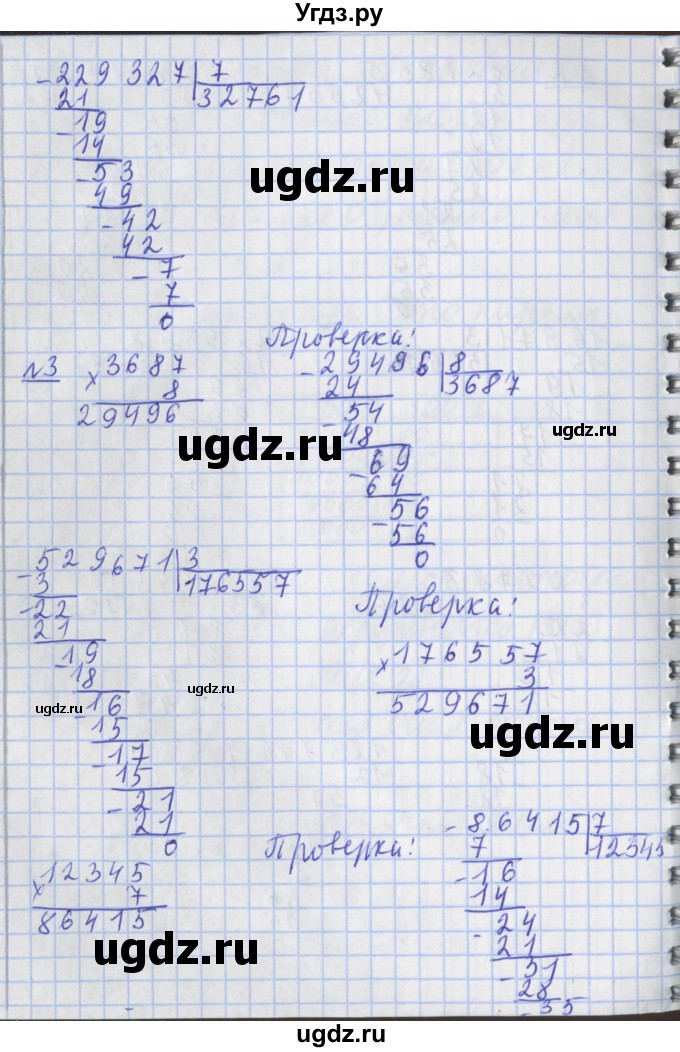 Угдз.ру
- 229 327 | 7
21 32761
- 19
14
- 53
49
- 42
42
- 7
7
0
ugdz.ru
№3
× 3687
8
29496
Проверка:
- 29496 | 8
24 3687
- 54
48
- 69
64
- 56
56
0
ugdz.ru
ugdz.ru
- 529671 | 3
3 176557
- 22
21
- 19
18
- 16
15
- 17
15
- 21
21
0
ugdz.ru
ugdz.ru
Проверка:
× 176557
3
529671
ugdz.ru
× 12345
7
86415
Проверка:
- 86415 | 7
7 12345
- 16
14
- 24
21
- 31
28
- 35
ugdz.ru
ugdz.ru